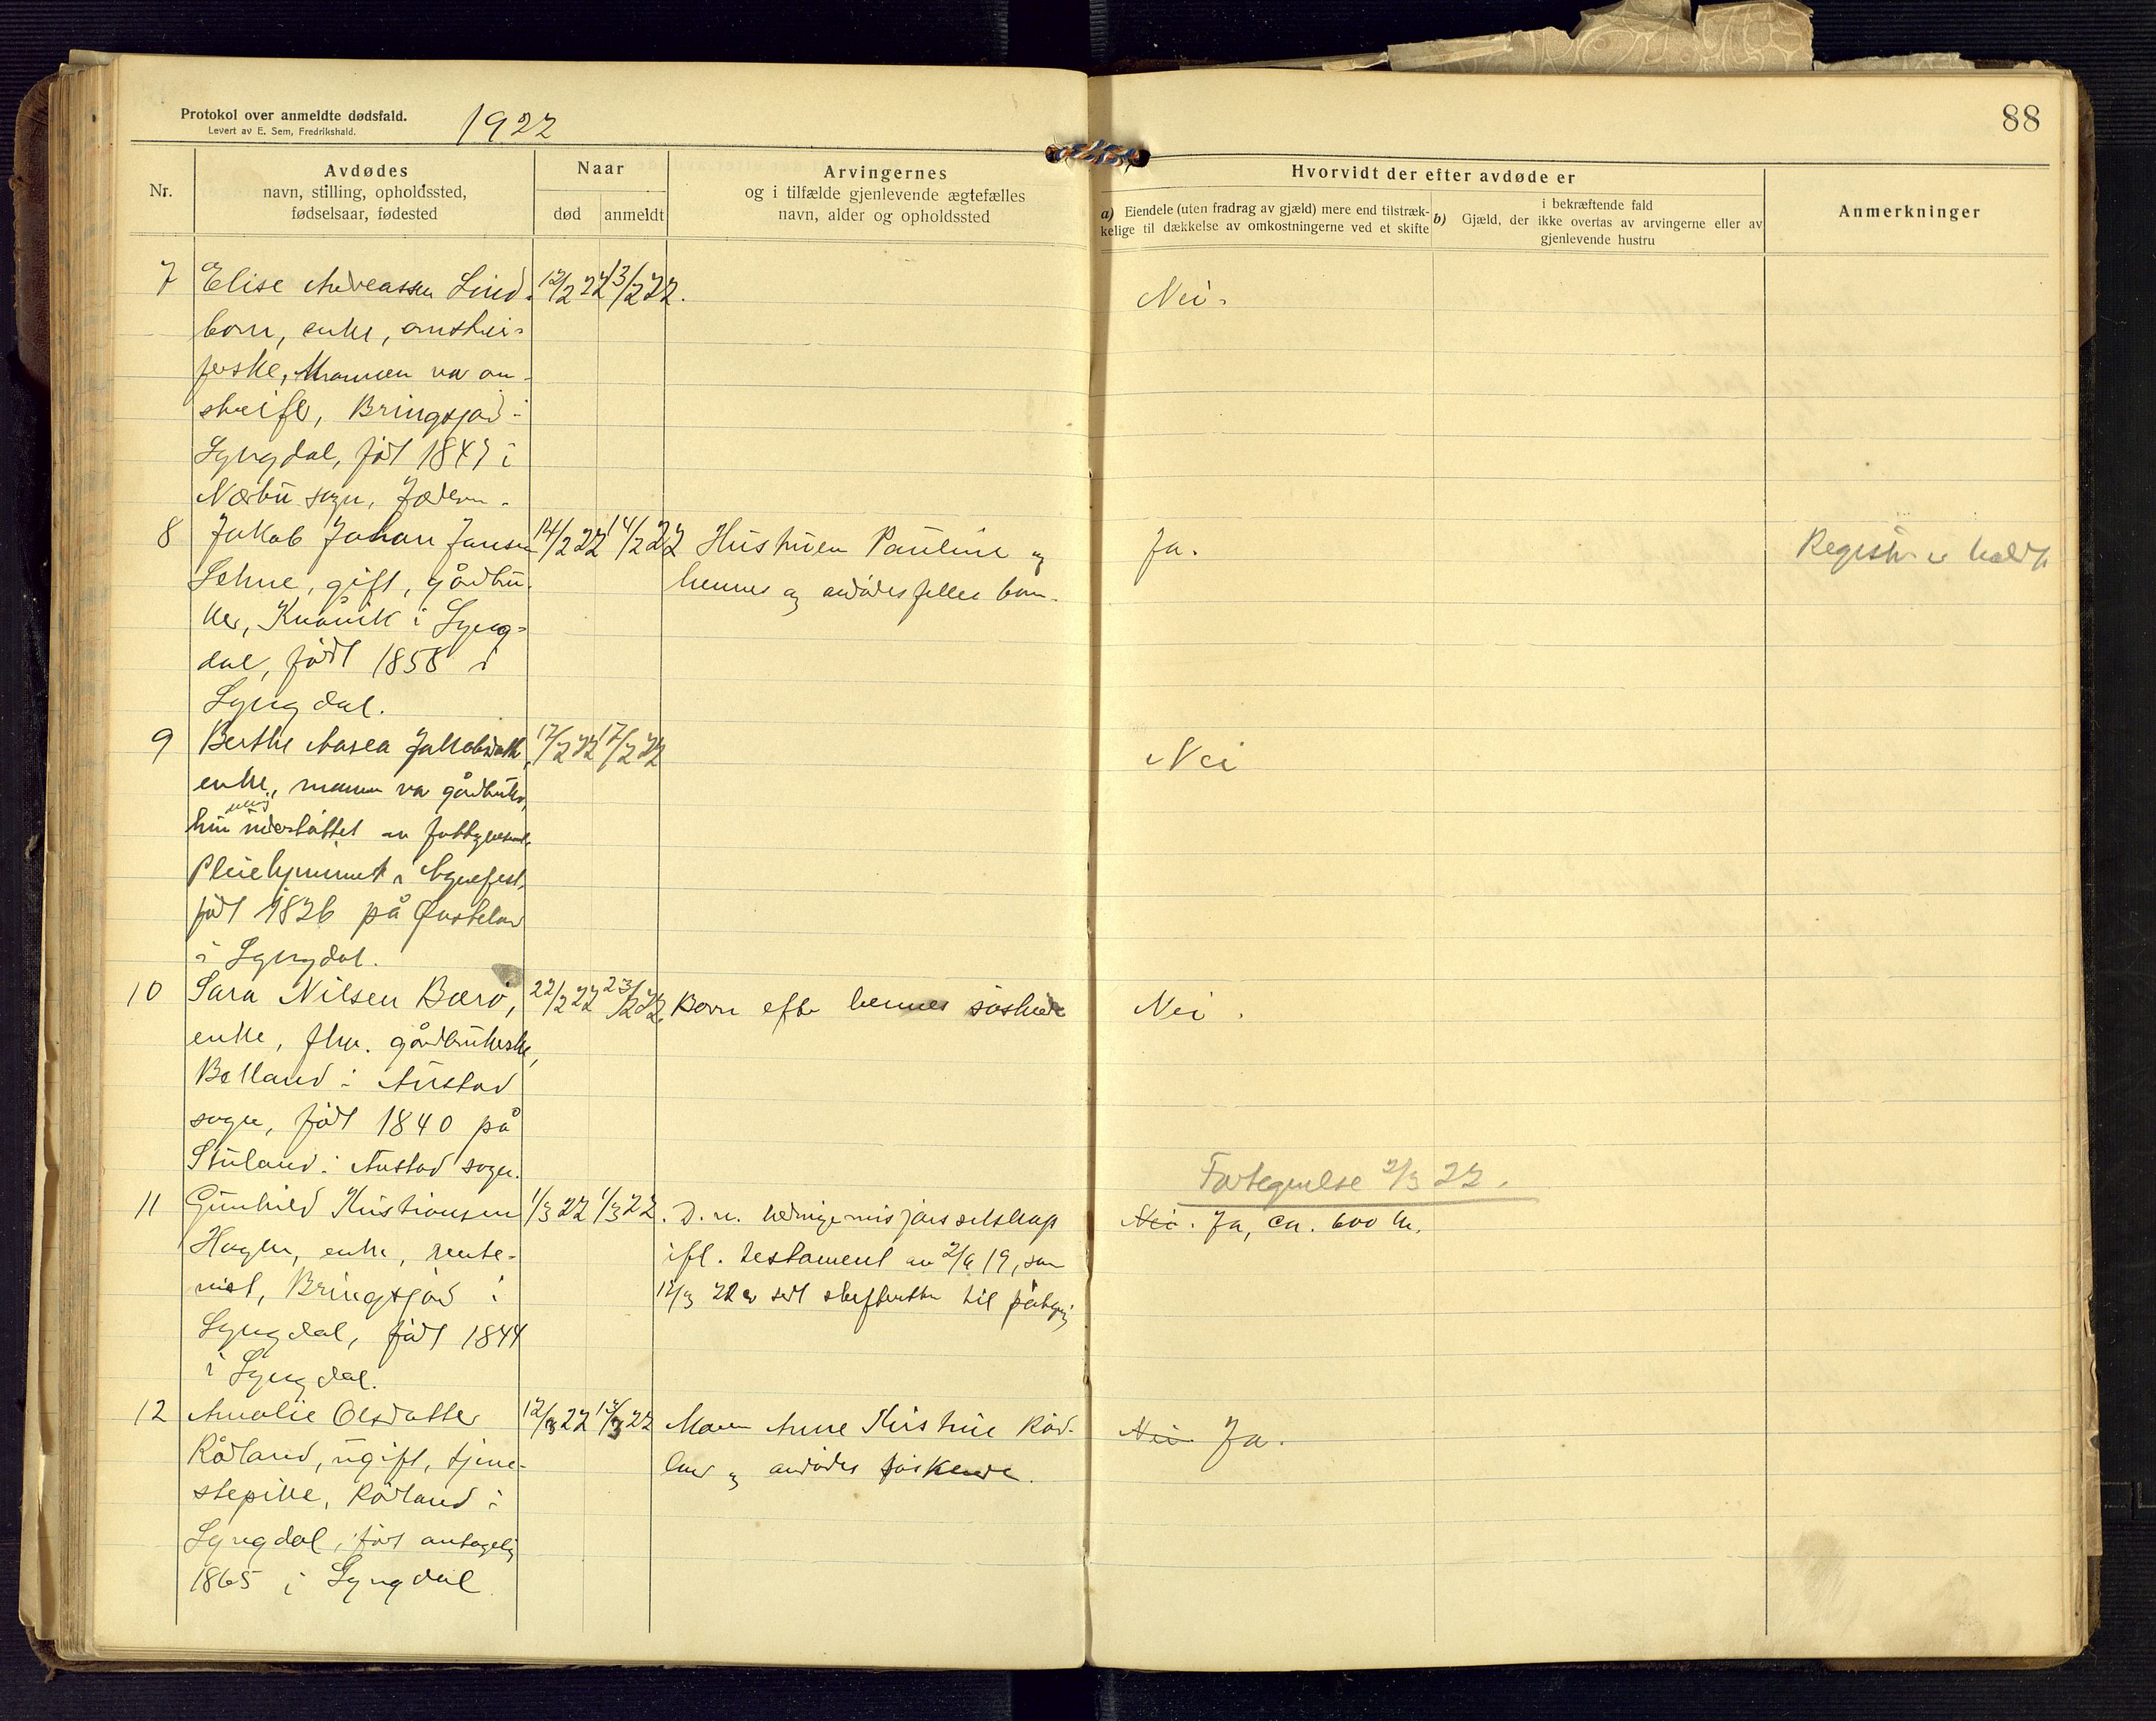 Protokol over anmeldte dødsfald.
Levert av E. Sem, Fredrikshald.
1922
88
Nr.
Avdødes
navn, stilling, opholdssted,
fødselsaar, fødested
Naar
død
anmeldt
Arvingernes
og i tilfælde gjenlevende ægtefælles
navn, alder og opholdssted
Hvorvidt der efter avdøde er
a) Eiendele (uten fradrag av gjæld) mere end tilstræk-
kelige til dækkelse av omkostningerne ved et skifte
b) i bekræftende fald
Gjæld, der ikke overtas av arvingerne eller av
gjenlevende hustru
Anmerkninger
7 Elise Andreassen Lind- 12/2 22 13/2 22. Nei.
born, enke, omstrei-
ferske, Mannen var om-
streifer, Bringsjord i
Lyngdal, født 1847 i
Nærbø sogn, Jæderen.
8 Jakob Johan Jansen 14/2 22 14/2 22 Hustruen Pauline og Ja. Registr. er holdt
Lehne, gift, gårdbru- hennes og avdødes felles barn.
ker, Kvåvik i Lyng-
dal, født 1858 i
Lyngdal.
9 Berthe Aasea Jakobsdatt. 17/2 22 17/2 22 Nei
enke, mannen var gårdbruker,
hun understøttet av fattigvesenet,
Pleiehjemmet i Agnefest,
født 1826 på Qvaveland
i Lyngdal.
10 Sara Nilsen Bærø, 22/2 22 23/2 22. Barn efter hennes søskende Nei.
enke, fhv. gårdbrukerske,
Bolland i Austad
sogn, født 1840 på
Stuland i Austad sogn.
Fortegnelse 2/3 22.
11 Gunhild Kristiansen 1/3 22 1/3 22. D. n. hedningemisjonsselskap Nei. Ja, ca. 600 kr.
Hagen, enke, rente- ifl. testament av 2/6 19, som
nist, Bringsjord i 12/3 22 er sendt skifteretten til påtegn.
Lyngdal, født 1844
i Lyngdal.
12 Amalie Olsdatter 12/3 22 13/3 22 Moren Anne Kristine Råd- Nei Ja.
Rådland, ugift, tjene- land og avdødes søskende.
stepike, Rådland i
Lyngdal, født antagelig
1865 i Lyngdal